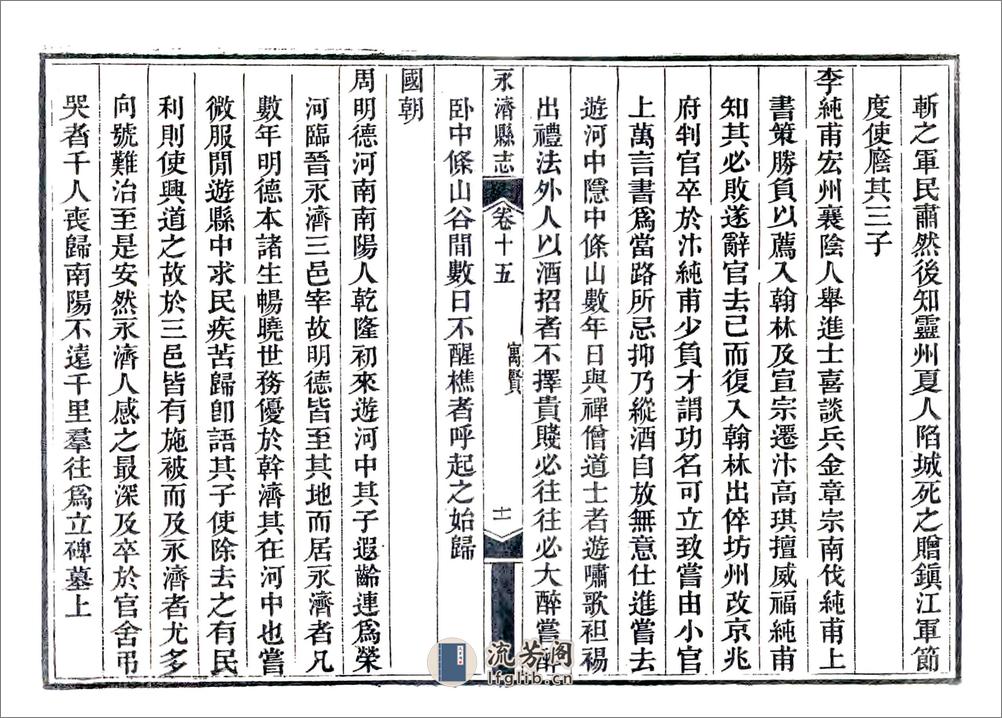 斬之軍民肅然後知靈州夏人陷城死之贈鎮江軍節
度使廕其三子
李純甫宏州襄陰人舉進士喜談兵金章宗南伐純甫上
書策勝負以薦入翰林及宣宗遷汴高琪擅威福純甫
知其必敗遂辭官去已而復入翰林出倅坊州改京兆
府判官卒於汴純甫少負才謂功名可立致嘗由小官
上萬言書爲當路所忌抑乃縱酒自放無意仕進嘗去
遊河中隱中條山數年日與禪僧道士者遊嘯歌袒裼
出禮法外人以酒招者不擇貴賤必往往必大醉嘗醉
永濟縣志 卷十五 寓賢 十一
卧中條山谷閒數日不醒樵者呼起之始歸
國朝
周明德河南南陽人乾隆初來遊河中其子遐齡連爲榮
河臨晉永濟三邑宰故明德皆至其地而居永濟者凡
數年明德本諸生暢曉世務優於幹濟其在河中也嘗
微服閒遊縣中求民疾苦歸卽語其子使除去之有民
利則使興道之故於三邑皆有施被而及永濟者尤多
向號難治至是安然永濟人感之最深及卒於官舍弔
哭者千人喪歸南陽不遠千里羣往爲立碑墓上
流芳阁
lfglib.cn